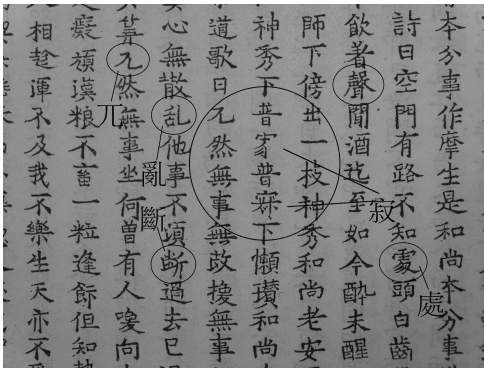 有夲分事作摩生是和尚夲分事
詩曰空門有路不知䖏頭白齒
飲者聲聞酒迄至如今醉未醒
師下傍出一技神秀和尚老安
神秀下普寂普寂下懶瓚和尚
道歌曰兀然無事無改換無事
心無散乱他事不湏断過去已
兀然無事坐何曾有人喚向
癡頑漠粮不畜一粒逢飰但知
相趍渾不及我不樂生天亦不
處
寂
斷
亂
丌